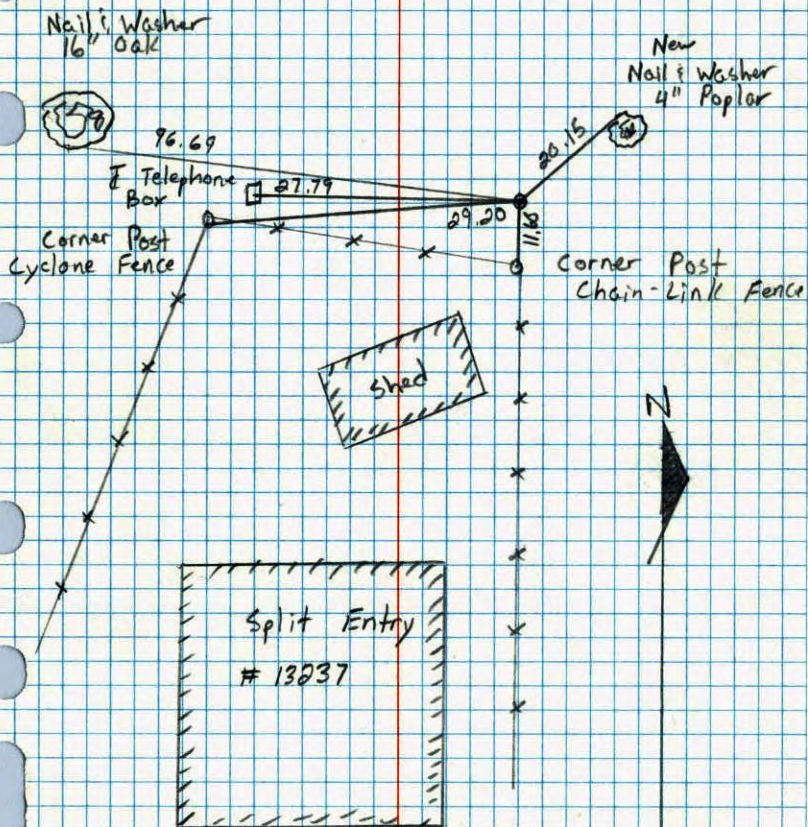 Nail & Washer
16" Oak
New
Nail & Washer
4" Poplar
96.69
20.15
℄ Telephone
Box
27.79
29.20
11.68
Corner Post
Cyclone Fence
Corner Post
Chain-Link Fence
Shed
N
Split Entry
# 13237